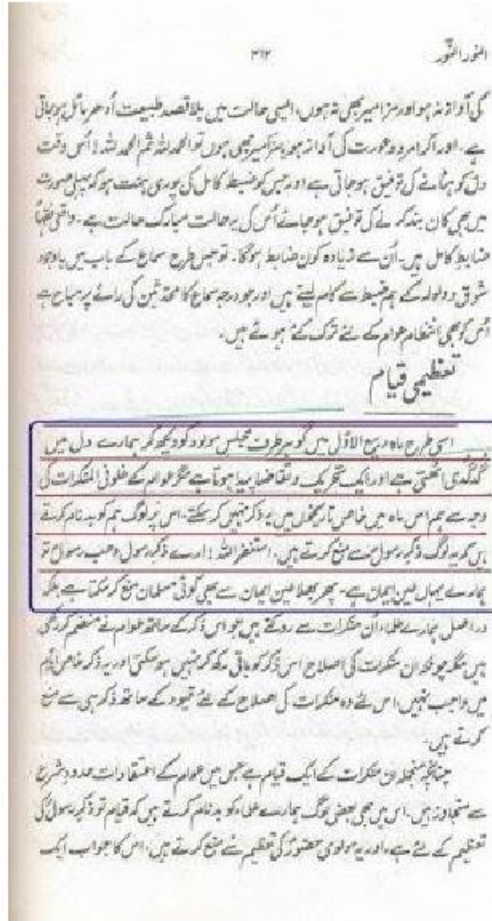 النور النّور ۳۱۲
کی آواز نہ ہو اور مزامیر بھی نہ ہوں، ایسی حالت میں بلا قصد طبیعت اُدھر مائل ہو جاتی
ہے۔ اور اگر امرد و عورت کی آواز ہو یا مزامیر بھی ہوں تو الحمد للہ ثم الحمد للہ اُس وقت
دل کو ہٹانے کی توفیق ہو جاتی ہے اور جس کو ضبط کامل کی پوری ہمت ہو کہ پہلی صورت
میں بھی کان بند کر لے کی توفیق ہو جائے اُس کی یہ حالت مبارک حالت ہے۔ واقعی
ضابط کامل ہیں۔ اُن سے زیادہ کون ضابط ہوگا۔ تو جس طرح سماع کے باب میں باوجود
شوق و ولولہ کے ہم ضبط سے کام لیتے ہیں اور جو درجہ سماع کا محدثین کی رائے پر مباح ہے
اُس کو بھی انتظام عوام کے لئے ترک کئے ہوئے ہیں۔
تعظیمی قیام
اسی طرح ماہ ربیع الاوّل میں گو ہر طرف مجلس مولود کو دیکھ کر ہمارے دل میں
گدگدی اُٹھتی ہے اور ایک تحریک و تقاضا پیدا ہوتا ہے مگر عوام کے غلو فی المنکرات کی
وجہ سے ہم اس ماہ میں خاص تاریخوں میں یہ ذکر نہیں کر سکتے۔ اس پر لوگ ہم کو بدنام کرتے
ہیں کہ یہ لوگ ذکر رسول سے منع کرتے ہیں۔ استغفر اللہ! ارے ذکر رسول و حب رسول تو
ہمارے یہاں عین ایمان ہے۔ پھر بھلا عین ایمان سے بھی کوئی مسلمان منع کر سکتا ہے بلکہ
دراصل ہمارے علماء اُن منکرات سے روکتے ہیں جو اس ذکر کے ساتھ عوام نے منضم کر دی
ہیں مگر چونکہ ان منکرات کی اصلاح اس ذکر کو باقی رکھ کر نہیں ہو سکتی اور یہ ذکر خاص ایام
میں واجب نہیں، اس لئے وہ منکرات کی اصلاح کے لئے قیود کے ساتھ ذکر ہی سے منع
کرتے ہیں۔
چنانچہ منجملہ ان منکرات کے ایک قیام ہے جس میں عوام کے اعتقادات حدود شرع
سے متجاوز ہیں۔ اس میں بھی بعض لوگ ہمارے علماء کو بدنام کرتے ہیں کہ قیام تو ذکر رسول کی
تعظیم کے لئے ہے، اور یہ مولوی حضورؐ کی تعظیم سے منع کرتے ہیں۔ اس کا جواب ایک